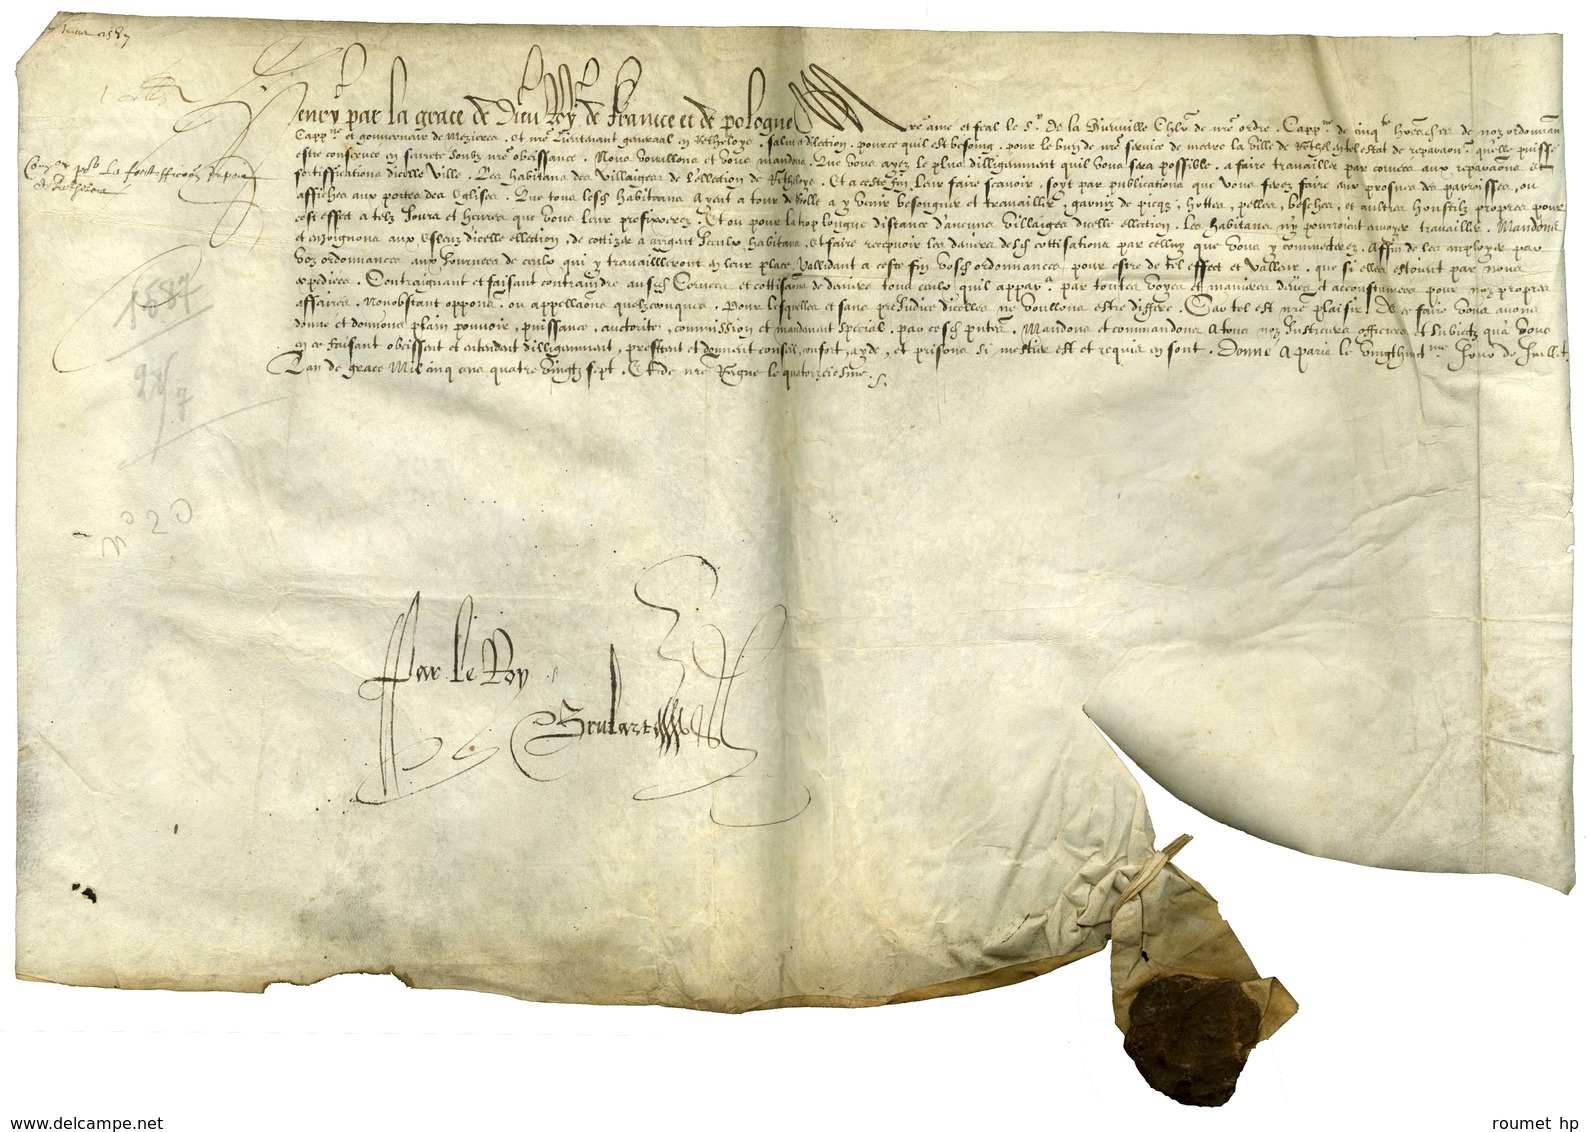 1587
Henry par la grace de Dieu Roy de France et de Pologne A nre ame et feal le Sr de la Vieuville Chlr de nre ordre . Cappne de cinqte hommes de noz ordonnan
Cappne et gouverneur de Mezieres . et nre Lieutenant general en Rethelois . salut et dilection . pource quil est besoing . pour le bien de nre service de mectre la ville de Rethel en tel estat de reparaon . quelle puisse
estre conservee en seurete soubz nre obeissance . Nous voullons et vous mandons . Que vous ayez le plus dilligemment quil vous sera possible . a faire travailler par corvees aux reparaons et
fortiffications dicelle ville . Les habitans des villaiges de l'ellection de Retheloys . Et a ceste fin leur faire scavoir , soyt par publications que vous ferez faire aux prosnes des parroisses , ou
affiches aux portes des eglises . Que tous lesd habitans ayent a tour de rolle a y venir besongner et travailler , garniz de picqz , hottes , pelles , besches , et aultres houstilz propres pour
cest effect a telz jours et heures que vous leur prefixerez . Et ou pour la trop longue distance d'aucuns villaiges dicelle ellection . Les habitans n'y pourroient envoyer travailler . Mandons
et enjoignons aux Esleuz dicelle ellection , de cottizer a argent iceulx habitans , et faire recepvoir les deniers desd cottisations par celluy que vous y commecterez . Affin de les employer par
voz ordonnances aux journees de ceulx qui y travailleront en leur place vallidant a ceste fin vosd ordonnances , pour estre de tel effect et valleur . que si elles estoient par nous
expediees . Contraignant et faisant contraindre ausd Corvees et cottisaons de deniers tous ceulx quil appara par toutes voyes et manieres deues et accoustumees pour noz propres
affaires . Nonobstant oppons . ou appellaons quelzconques . Pour lesquelles et sans prejudice dicelles ne voullons estre differe . Car tel est nre plaisir . De ce faire vous avons
donne et donnons plain pouvoir , puissance , auctorite , commission et mandement special . par cesd pntes . Mandons et commandons a tous noz justiciers officiers et subiectz qu'a vous
en ce faisant obeissent et entendent dilligemment , prestent et donnent conseil , confort , ayde , et prisons si mestier est et requis en sont . Donne a Paris le vingthuictme Jour de Juillet .
Lan de grace Mil cinq cens quatre vingtz sept . Et de nre Regne le quatorzeiesme .
pour La fortifficaon
de Retheloys
1587
28/7
n° 20
Par le Roy
Brulart
www.delcampe.net
roumet hp